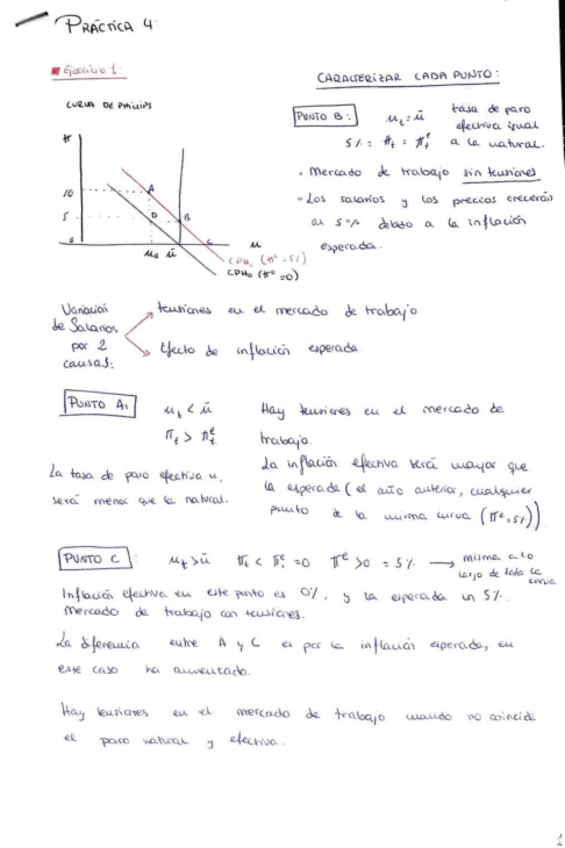 PRÁCTICA 4:
Ejercicio 1:
CURVA DE PHILLIPS
π
10
5
0
A
D
B
C
u
ua ū
CPA, (πe = 5%)
CPH0 (πe = 0)
CARACTERIZAR CADA PUNTO:
PUNTO B:
ut = ū
tasa de paro
efectiva igual
a la natural.
5% = πt = πte
• Mercado de trabajo sin tensiones
• Los salarios y los precios crecerán
al 5% debido a la inflación
esperada.
Variación
de Salarios
por 2
causas:
tensiones en el mercado de trabajo
Efecto de inflación esperada
PUNTO A:
ut < ū
πt > πte
Hay tensiones en el mercado de
trabajo.
La tasa de paro efectiva u,
será menor que la natural.
La inflación efectiva será mayor que
la esperada (el año anterior, cualquier
punto de la misma curva (πe = 5%))
PUNTO C:
ut > ū πt < πte = 0 πe > 0 = 5% → misma a lo
largo de toda la
curva
Inflación efectiva en este punto es 0%, y la esperada un 5%.
Mercado de trabajo con tensiones.
La diferencia entre A y C es por la inflación esperada, en
este caso ha aumentado.
Hay tensiones en el mercado de trabajo cuando no coincide
el paro natural y efectiva.
1